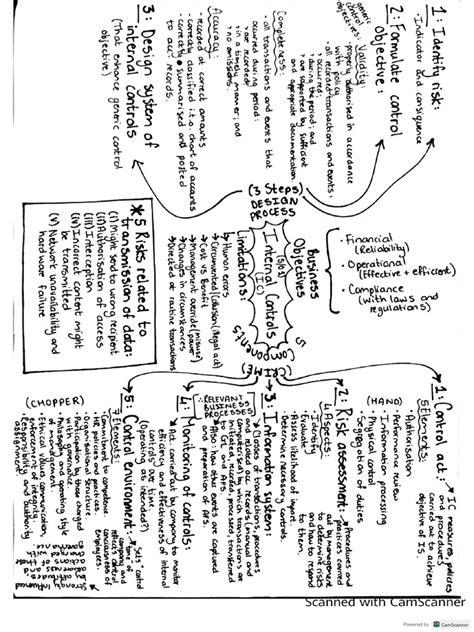 1: Identify risk:
- Indicator and consequence
2: Formulate control
objective:
generic
control
objectives:
Validity:
- properly authorised in accordance
with policy
- all recorded transactions and events:
occurred;
during the period; and
are supported by sufficient
and appropriate documentation
Completeness:
- all transactions and events that
occurred during period:
are recorded;
in a timely manner; and
no omissions.
Accuracy:
- recorded at correct amounts
- correctly classified i.t.o. chart of accounts
- correctly summarised and posted
to acc. records.
3: Design system of
internal controls
(That enhance generic control
objective)
(3 Steps)
DESIGN
PROCESS
Internal Controls
(IC)
Business
Objectives
• Financial
(Reliability)
• Operational
(Effective + efficient)
• Compliance
(with laws and
regulations)
Limitations:
Human errors
Circumvented (Collusion (illegal act)
Cost vs Benefit
Management override (misuse)
Changes in circumstances
Directed at routine transactions
*5 Risks related to
transmission of data:
(i) Might send to wrong recipient
(ii) Authorisation of access
(iii) Interception
(iv) Incorrect content might
be transmitted
(v) Network unavailability and
hardware failure
5 Components
(CRIME)
1: Control act.:
IC measures, policies
and procedures
carried out to achieve
objective of IS.
5 Elements:
Authorisation
Performance review
(HAND)
Information processing
Physical control
Segregation of duties
2: Risk assessment:
Procedures and
policies carried
out by management
to determine risks
and how to respond
to them
4 Aspects:
- Identify
- Evaluate
- Assess likelihood of
- Determine necessary controls.
3: Information system:
RELEVANT
BUSINESS
PROCESSES
Classes of transactions, procedures
and related acc. records (manual and
computerised) by which transactions are
initiated, recorded, processed, transferred
to GL
Also: how the events are captured
and preparation of AFS.
4: Monitoring of controls:
Act. carried out by company to monitor
efficiency and effectiveness of internal
controls over time.
(Operating as intended?)
5: Control environment:
Sets "control
company and
control
consciousness of
employees.
(CHOPPER)
7 Elements:
Commitment to competence
HR policies and practices.
Organisational structure
Participation by those charged
with governance.
Philosophy and operating style
of management
Ethical values, communication,
enforcement of integrity.
Responsibility and authority
assignment
strongly influenced
by attitudes,
awareness and
actions of those
charged with
governance
Scanned with CamScanner
Powered by CamScanner